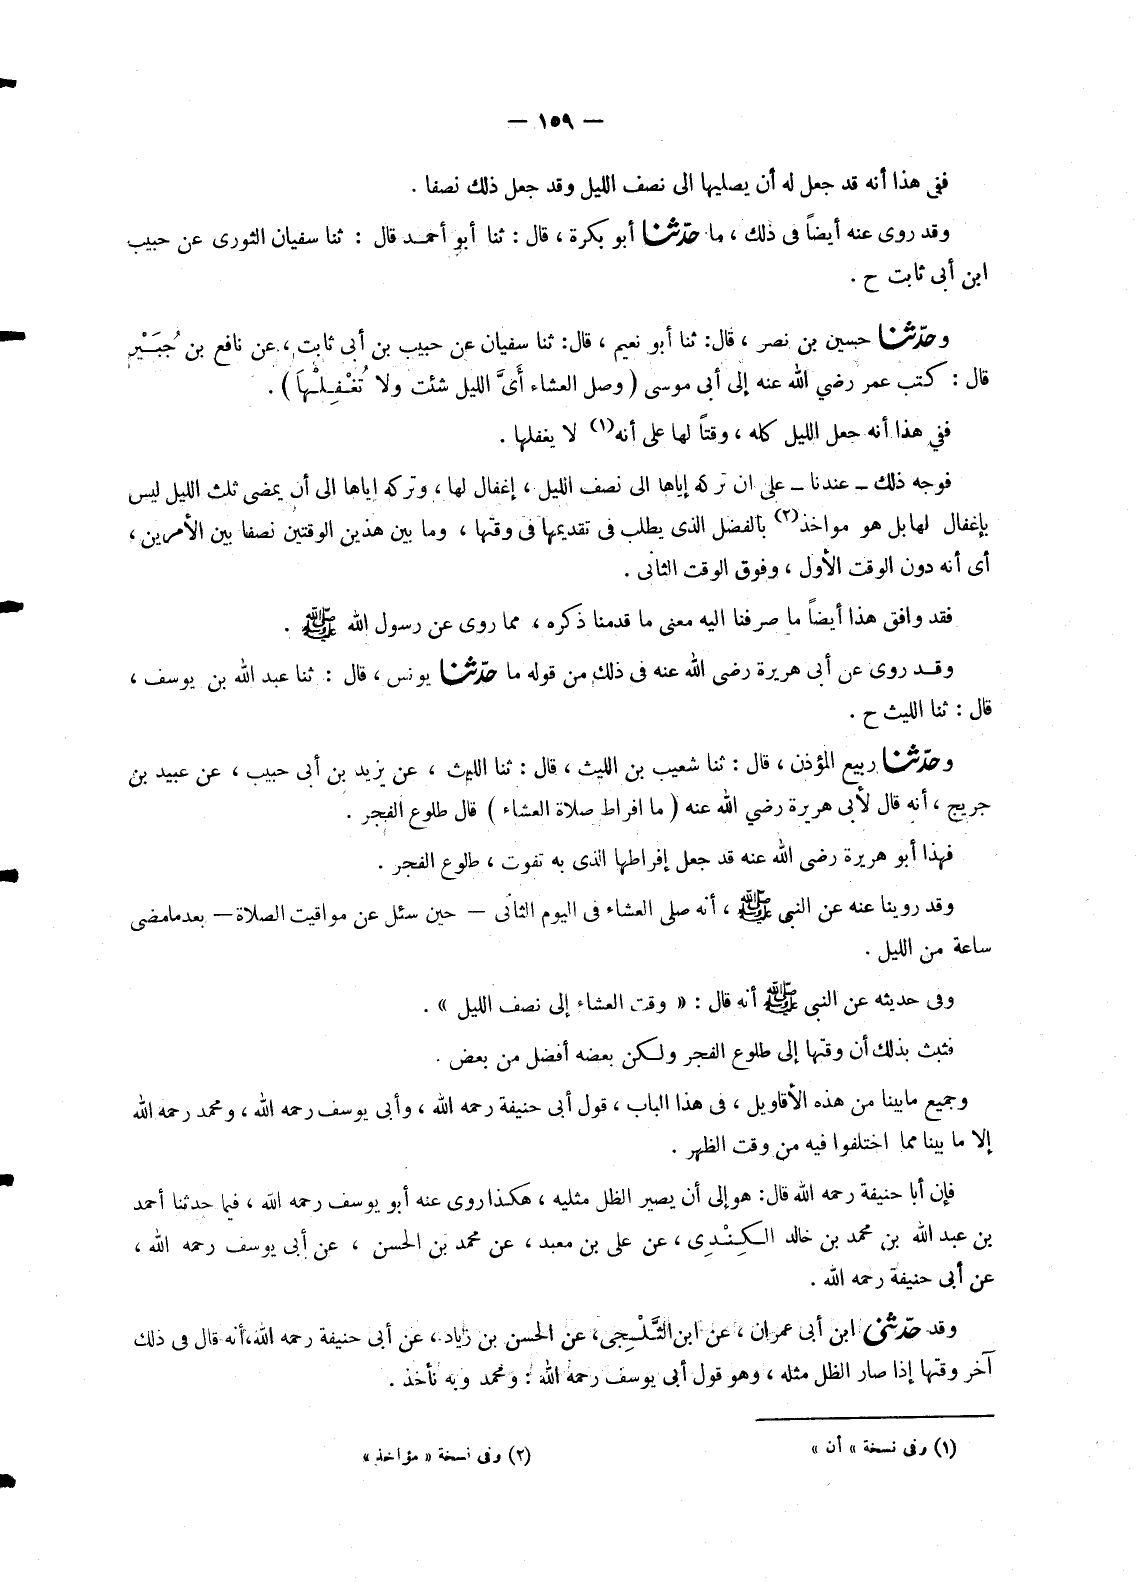 — ١٥٩ —
ففى هذا أنه قد جعل له أن يصليها الى نصف الليل وقد جعل ذلك نصفا .
وقد روى عنه أيضاً فى ذلك ، ما حدّثنا أبو بكرة ، قال : ثنا أبو أحمـد قال : ثنا سفيان الثورى عن حبيب
ابن أبى ثابت ح .
وحدّثنا حسين بن نصر ، قال: ثنا أبو نعيم ، قال: ثنا سفيان عن حبيب بن أبى ثابت ، عن نافع بن جُبَـيْر
قال : كتب عمر رضي الله عنه إلى أبى موسى ( وصل العشاء أَىَّ الليل شئت ولا تُغْـفِـلْـهَا ) .
ففي هذا أنه جعل الليل كله ، وقتاً لها على أنه(١) لا يغفلها .
فوجه ذلك ــ عندنا ــ على ان تركه إياها الى نصف الليل ، إغفال لها ، وتركه إياها الى أن يمضى ثلث الليل ليس
بإغفال لها بل هو مواخذ(٢) بالفضل الذى يطلب فى تقديمها فى وقتها ، وما بين هذين الوقتين نصفا بين الأمرين ،
أى أنه دون الوقت الأول ، وفوق الوقت الثانى .
فقد وافق هذا أيضاً ما صرفنا اليه معنى ما قدمنا ذكره ، مما روى عن رسول الله ﷺ .
وقـد روى عن أبى هريرة رضى الله عنه فى ذلك من قوله ما حدّثنا يونس ، قال : ثنا عبد الله بن يوسف ،
قال : ثنا الليث ح .
وحدّثنا ربيع المؤذن ، قال : ثنا شعيب بن الليث ، قال : ثنا الليث ، عن يزيد بن أبى حبيب ، عن عبيد بن
جريج ، أنه قال لأبى هريرة رضي الله عنه ( ما افراط صلاة العشاء ) قال طلوع الفجر .
فهذا أبو هريرة رضى الله عنه قد جعل إفراطها الذى به تفوت ، طلوع الفجر .
وقد روينا عنه عن النبي ﷺ ، أنه صلى العشاء فى اليوم الثانى — حين سئل عن مواقيت الصلاة — بعدمامضى
ساعة من الليل .
وفى حديثه عن النبى ﷺ أنه قال : « وقت العشاء إلى نصف الليل » .
فثبت بذلك أن وقتها إلى طلوع الفجر ولـكن بعضه أفضل من بعض .
وجميع مابينا من هذه الأقاويل ، فى هذا الباب ، قول أبى حنيفة رحمه الله ، وأبى يوسف رحمه الله ، ومحمد رحمه الله
إلا ما بينا مما اختلفوا فيه من وقت الظهر .
فإن أبا حنيفة رحمه الله قال: هو إلى أن يصير الظل مثليه ، هكـذا روى عنه أبو يوسف رحمه الله ، فيما حدثنا أحمد
بن عبد الله بن محمد بن خالد الـكِـنْـدِى ، عن على بن معبد ، عن محمد بن الحسن ، عن أبى يوسف رحمه الله ،
عن أبى حنيفة رحمه الله .
وقد حدّثنى ابن أبى عمران ، عن ابن الثَّـلْـجِى، عن الحسن بن زياد ، عن أبى حنيفة رحمه الله،أنه قال فى ذلك
آخر وقتها إذا صار الظل مثله ، وهو قول أبى يوسف رحمه الله ؛ ومحمد وبه نأخذ .
(١) وفى نسخة » أن »
(٢) وفى نسخة « مؤاخذ »